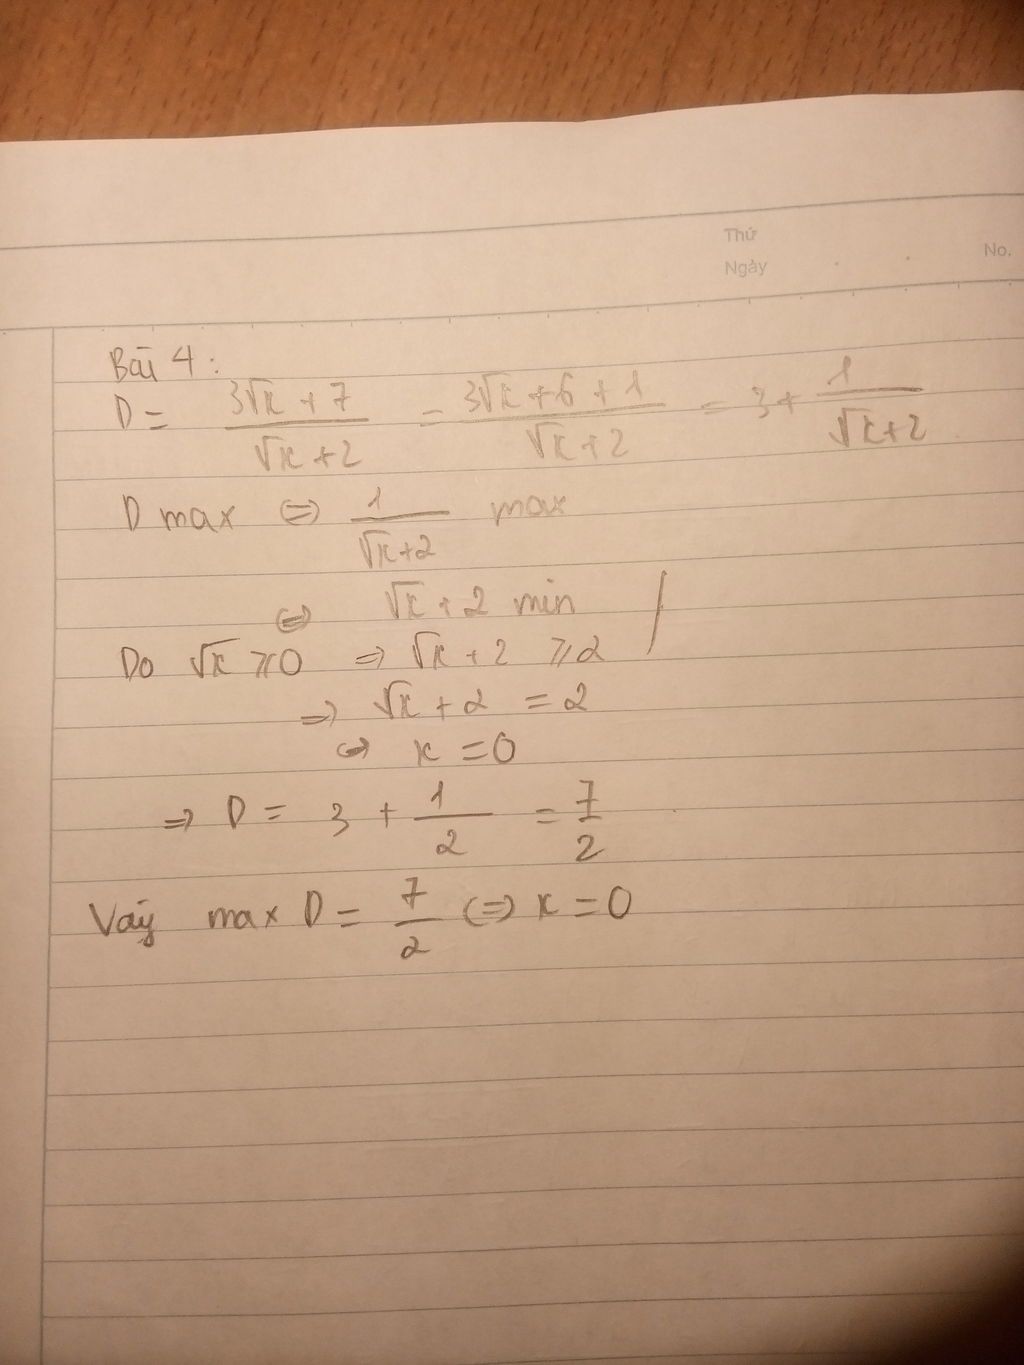 Thứ
Ngày
No.
Bài 4:
D = (3√x + 7)/(√x + 2) = (3√x + 6 + 1)/(√x + 2) = 3 + 1/(√x + 2)
D max ⇔ 1/(√x + 2) max
⇔ √x + 2 min
Do √x ⩾ 0 ⇒ √x + 2 ⩾ 2
⇒ √x + 2 = 2
⇔ x = 0
⇒ D = 3 + 1/2 = 7/2
Vậy max D = 7/2 ⇔ x = 0